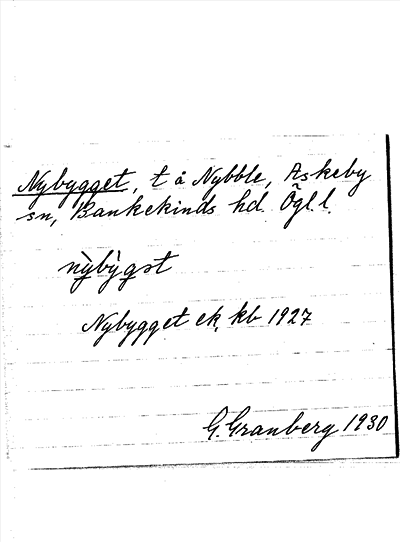 Nybygget, t å Nybble, Askeby
sn, Bankekinds hd. Ögl. l.
nỳbỳgət
Nybygget ek. kb 1927
G. Granberg 1930